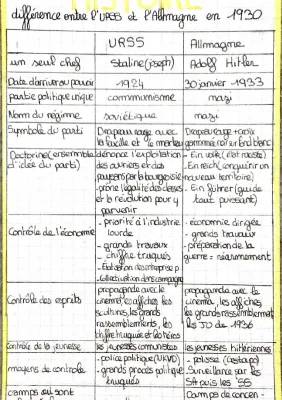 HISTOIRE
différence entre l'URSS et l'Allmagne en 1930
URSS Allmagne
un seul chef Staline(joseph) Adolf Hitler
Date d'arriver au pouvoir 1924 30 janvier 1933
partie politique unique communisme nazi
Nom du régime soviétique nazi
Symbole du parti Drapeau rouge avec Drapeau rouge + croix
la faucille et le marteau gammée noir sur fond blanc
Doctorine (ensemble dénonce l'exploitation - Ein volk (l'état raciste)
d'idée du parti) des ouvriers et des - Ein reich (conquérir un
paysans par la bourgeoisie nouveau territoire)
prône légalité des classes - Ein führer (guide
et la révolution pour y tout puissant)
parvenir
Contrôle de l'économie - priorité a l'industrie - économie dirigée
lourde - grands travaux
- grands travaux - préparation de la
- chiffre truqués guerre : réarmement
- Collectivisation des campagne
Contrôle des esprits propagande avec le propagande avec le
cinema, les affiches, les cinema, les affiches,
scultures, les grands les grands rassemblements,
rassemblements, les les JO de 1936
chiffre truqués et les héros
Contrôle de la jeunesse les jeunesses communistes les jeunesses hitlériennes
moyens de contrôle - police politique (NKVD) - police (Gestapo)
- grands procès politique Surveillance par les
truqués SA puis les SS
camps qui sont Camps de concen-